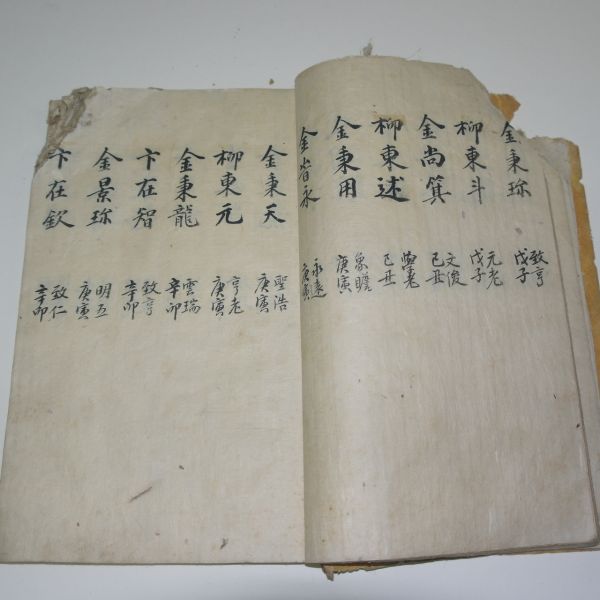 金秉珎
致亨
戊子
柳東斗
元老
戊子
金尚箕
文俊
己丑
柳東述
己丑
金秉用
象瞻
庚寅
金
永
永遠
庚寅
金秉天
聖浩
庚寅
柳東元
亨老
庚寅
金秉龍
雲瑞
辛卯
卞在智
致亨
辛卯
金景珎
明五
庚寅
卞在欽
致仁
辛卯